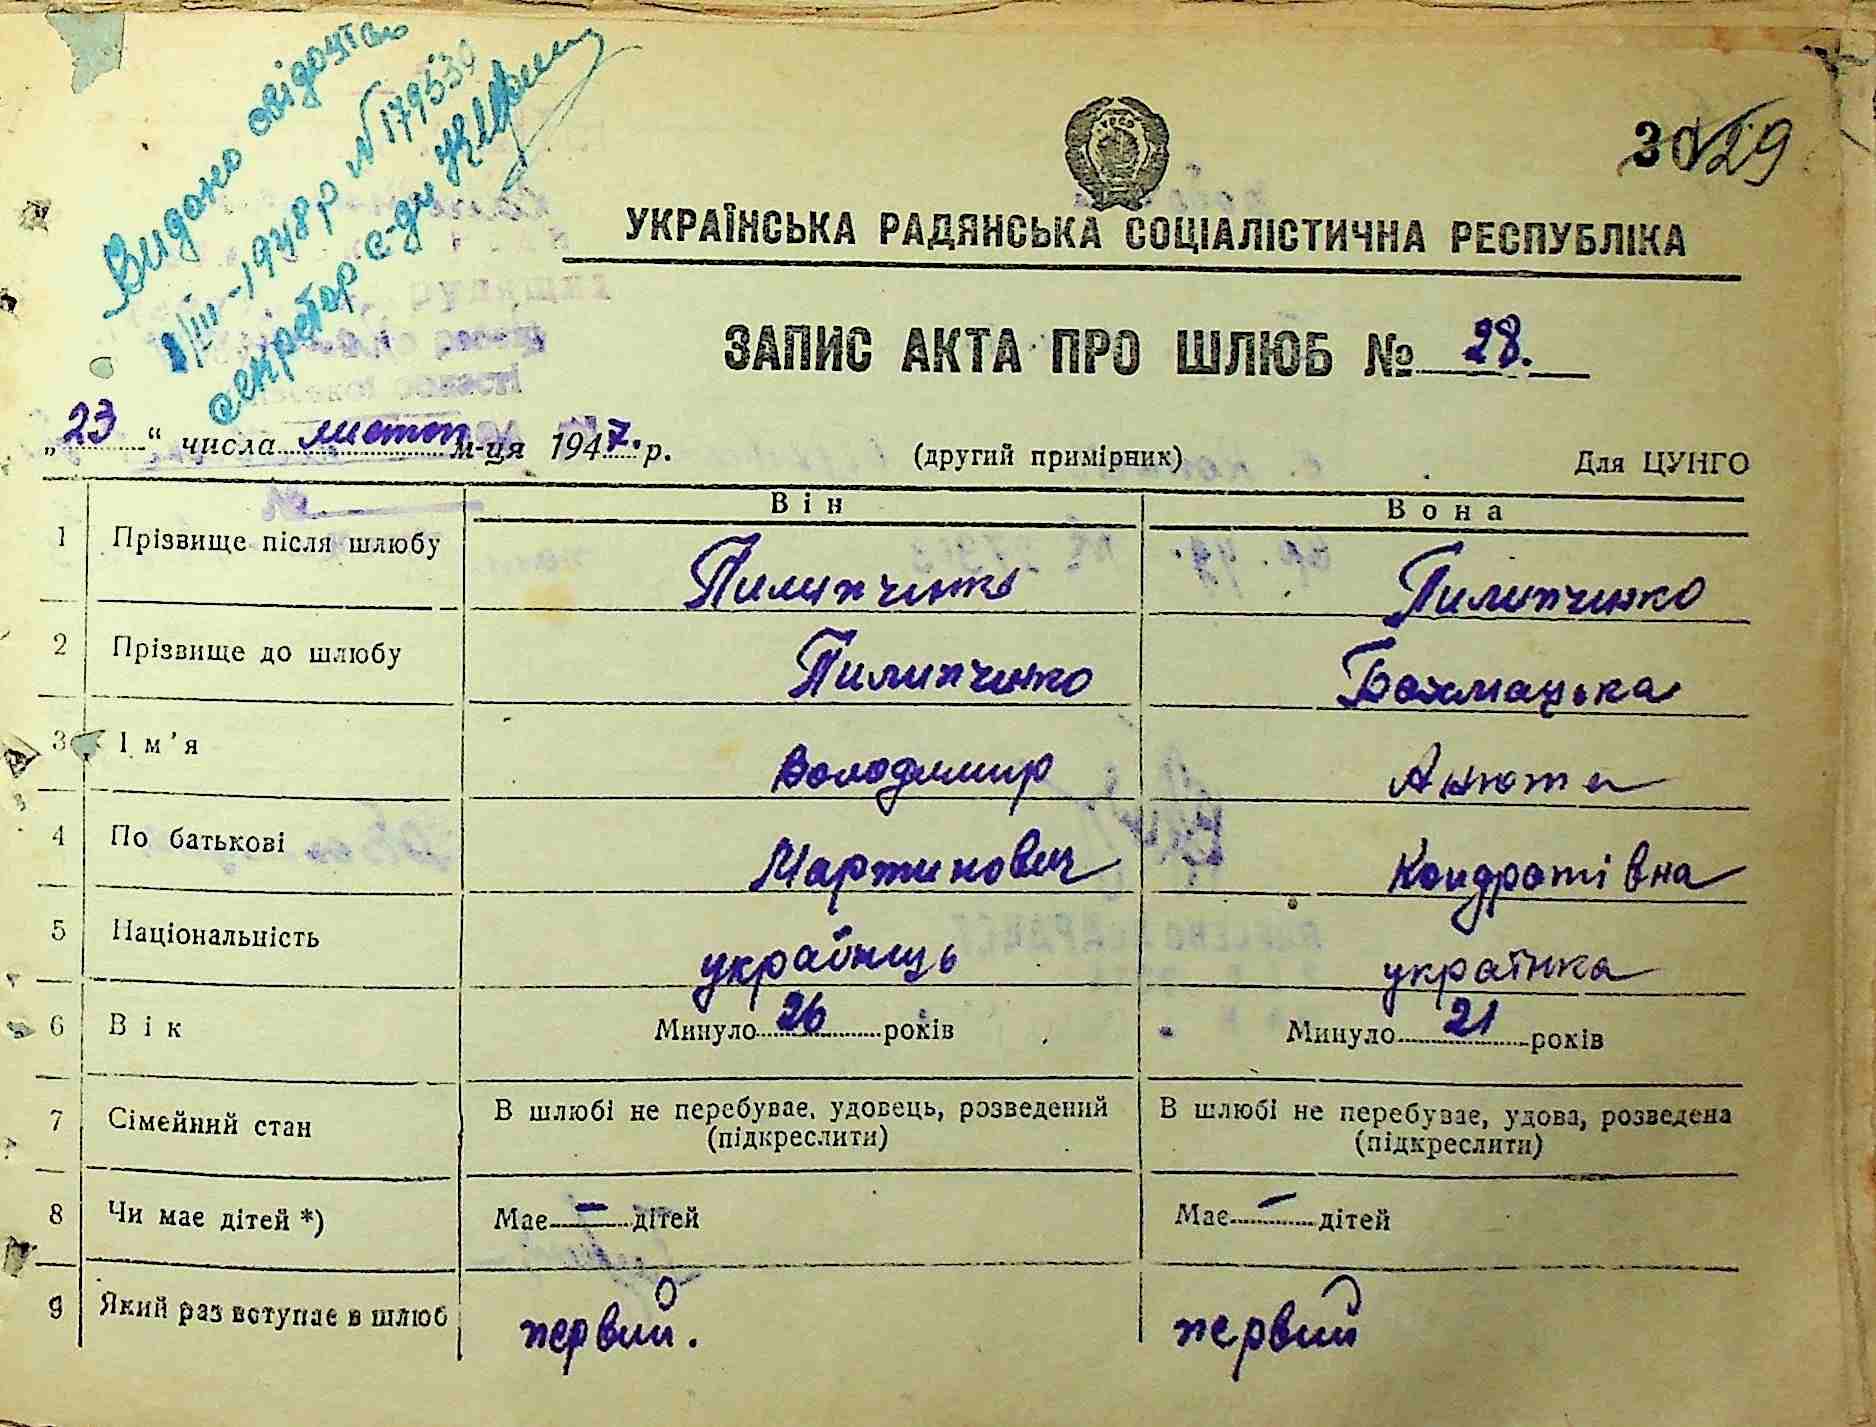 Видано свідоцтво
1/III-1948 р № 179530
секретар с-ди
30 29
УКРАЇНСЬКА РАДЯНСЬКА СОЦІАЛІСТИЧНА РЕСПУБЛІКА
ЗАПИС АКТА ПРО ШЛЮБ № 28.
„23“ числа листоп м-ця 1947. р. (другий примірник) Для ЦУНГО
Він Вона
1 Прізвище після шлюбу Пилипченко Пилипченко
2 Прізвище до шлюбу Пилипченко Бахмацька
3 Ім'я Володимир Анюта
4 По батькові Мартинович Кондратівна
5 Національність українець українка
6 Вік Минуло 26 років Минуло 21 років
7 Сімейний стан В шлюбі не перебуває, удовець, розведений В шлюбі не перебуває, удова, розведена
(підкреслити) (підкреслити)
8 Чи має дітей *) Має — дітей Має — дітей
9 Який раз вступає в шлюб первий. первий